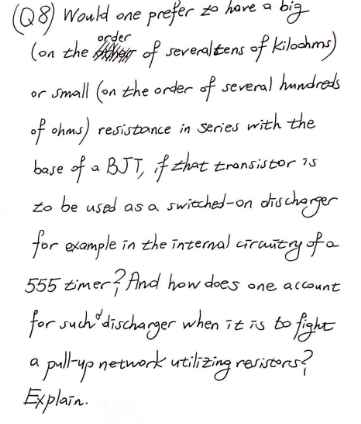 (Q8) Would one prefer to have a big
order
(on the of several tens of kiloohms)
or small (on the order of several hundreds
of ohms) resistance in series with the
base of a BJT, if that transistor is
to be used as a switched-on discharger
for example in the internal circuitry of a
555 timer? And how does one account
for such "discharger when it is to fight
a pull-up network utilizing resistors?
Explain.